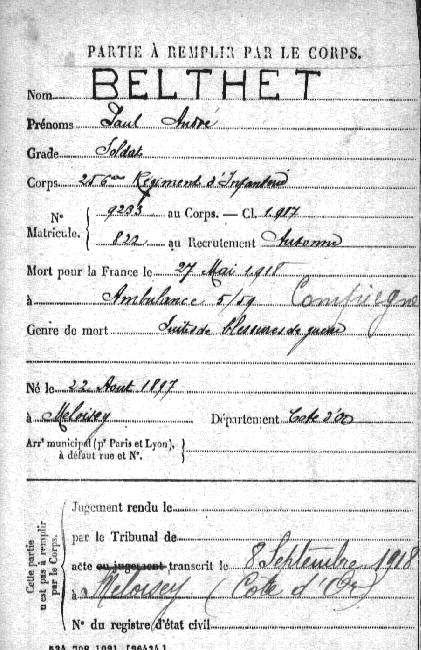 PARTIE À REMPLIR PAR LE CORPS.
Nom BELTHET
Prénoms Paul André
Grade Soldat
Corps 256me Régiment d'Infanterie
N° Matricule. { 9233 au Corps. — Cl. 1917
822 au Recrutement
Mort pour la France le 27 Mai 1918
à Ambulance 5/59 Compiègne
Genre de mort Suites de blessures de guerre
Né le 22 Aout 1897
à Meloisey Département Cote d'Or
Arrt municipal (pr Paris et Lyon),
à défaut rue et N°. }
Cette partie
n'est pas à remplir
par le Corps.
Jugement rendu le
par le Tribunal de
acte ou jugement transcrit le 8 Septembre 1918
à Meloisey (Cote d'Or)
N° du registre d'état civil